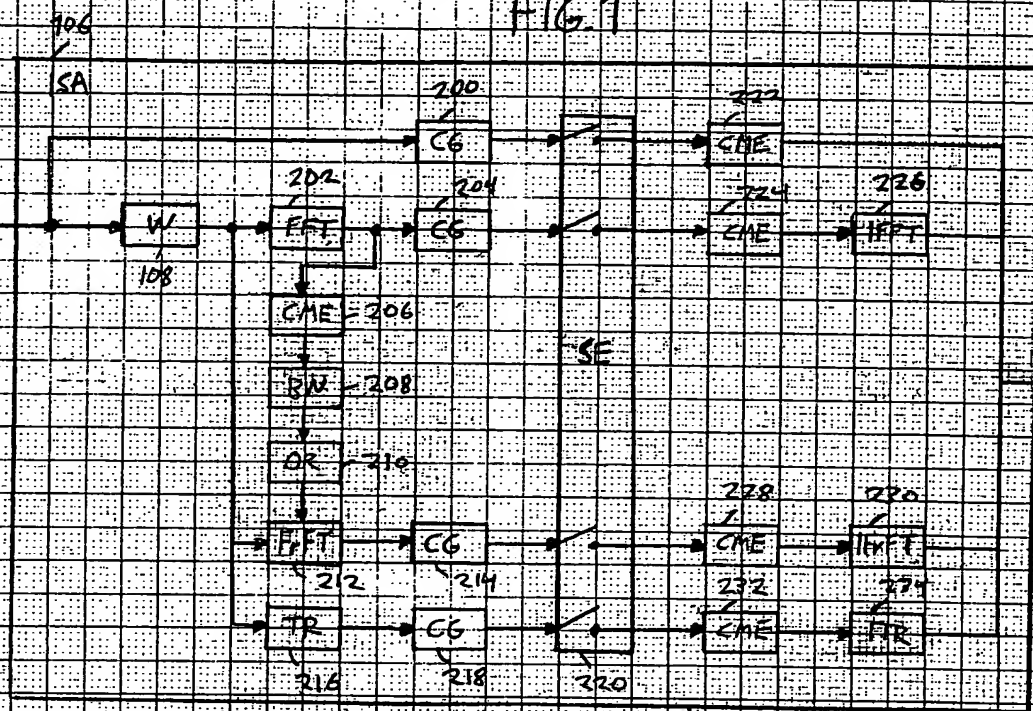 FIG. 7
106
SA
200
222
CG
CME
202
204
224
226
W
FFT
CG
CME
IFFT
108
CME 206
SE
BN 208
OR 210
228
230
FrFT
CG
CME
IFrFT
212
214
232
234
TR
CG
CME
ITR
216
218
220